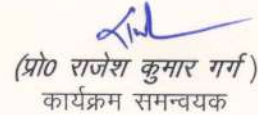 (प्रो० राजेश कुमार गर्ग)
कार्यक्रम समन्वयक